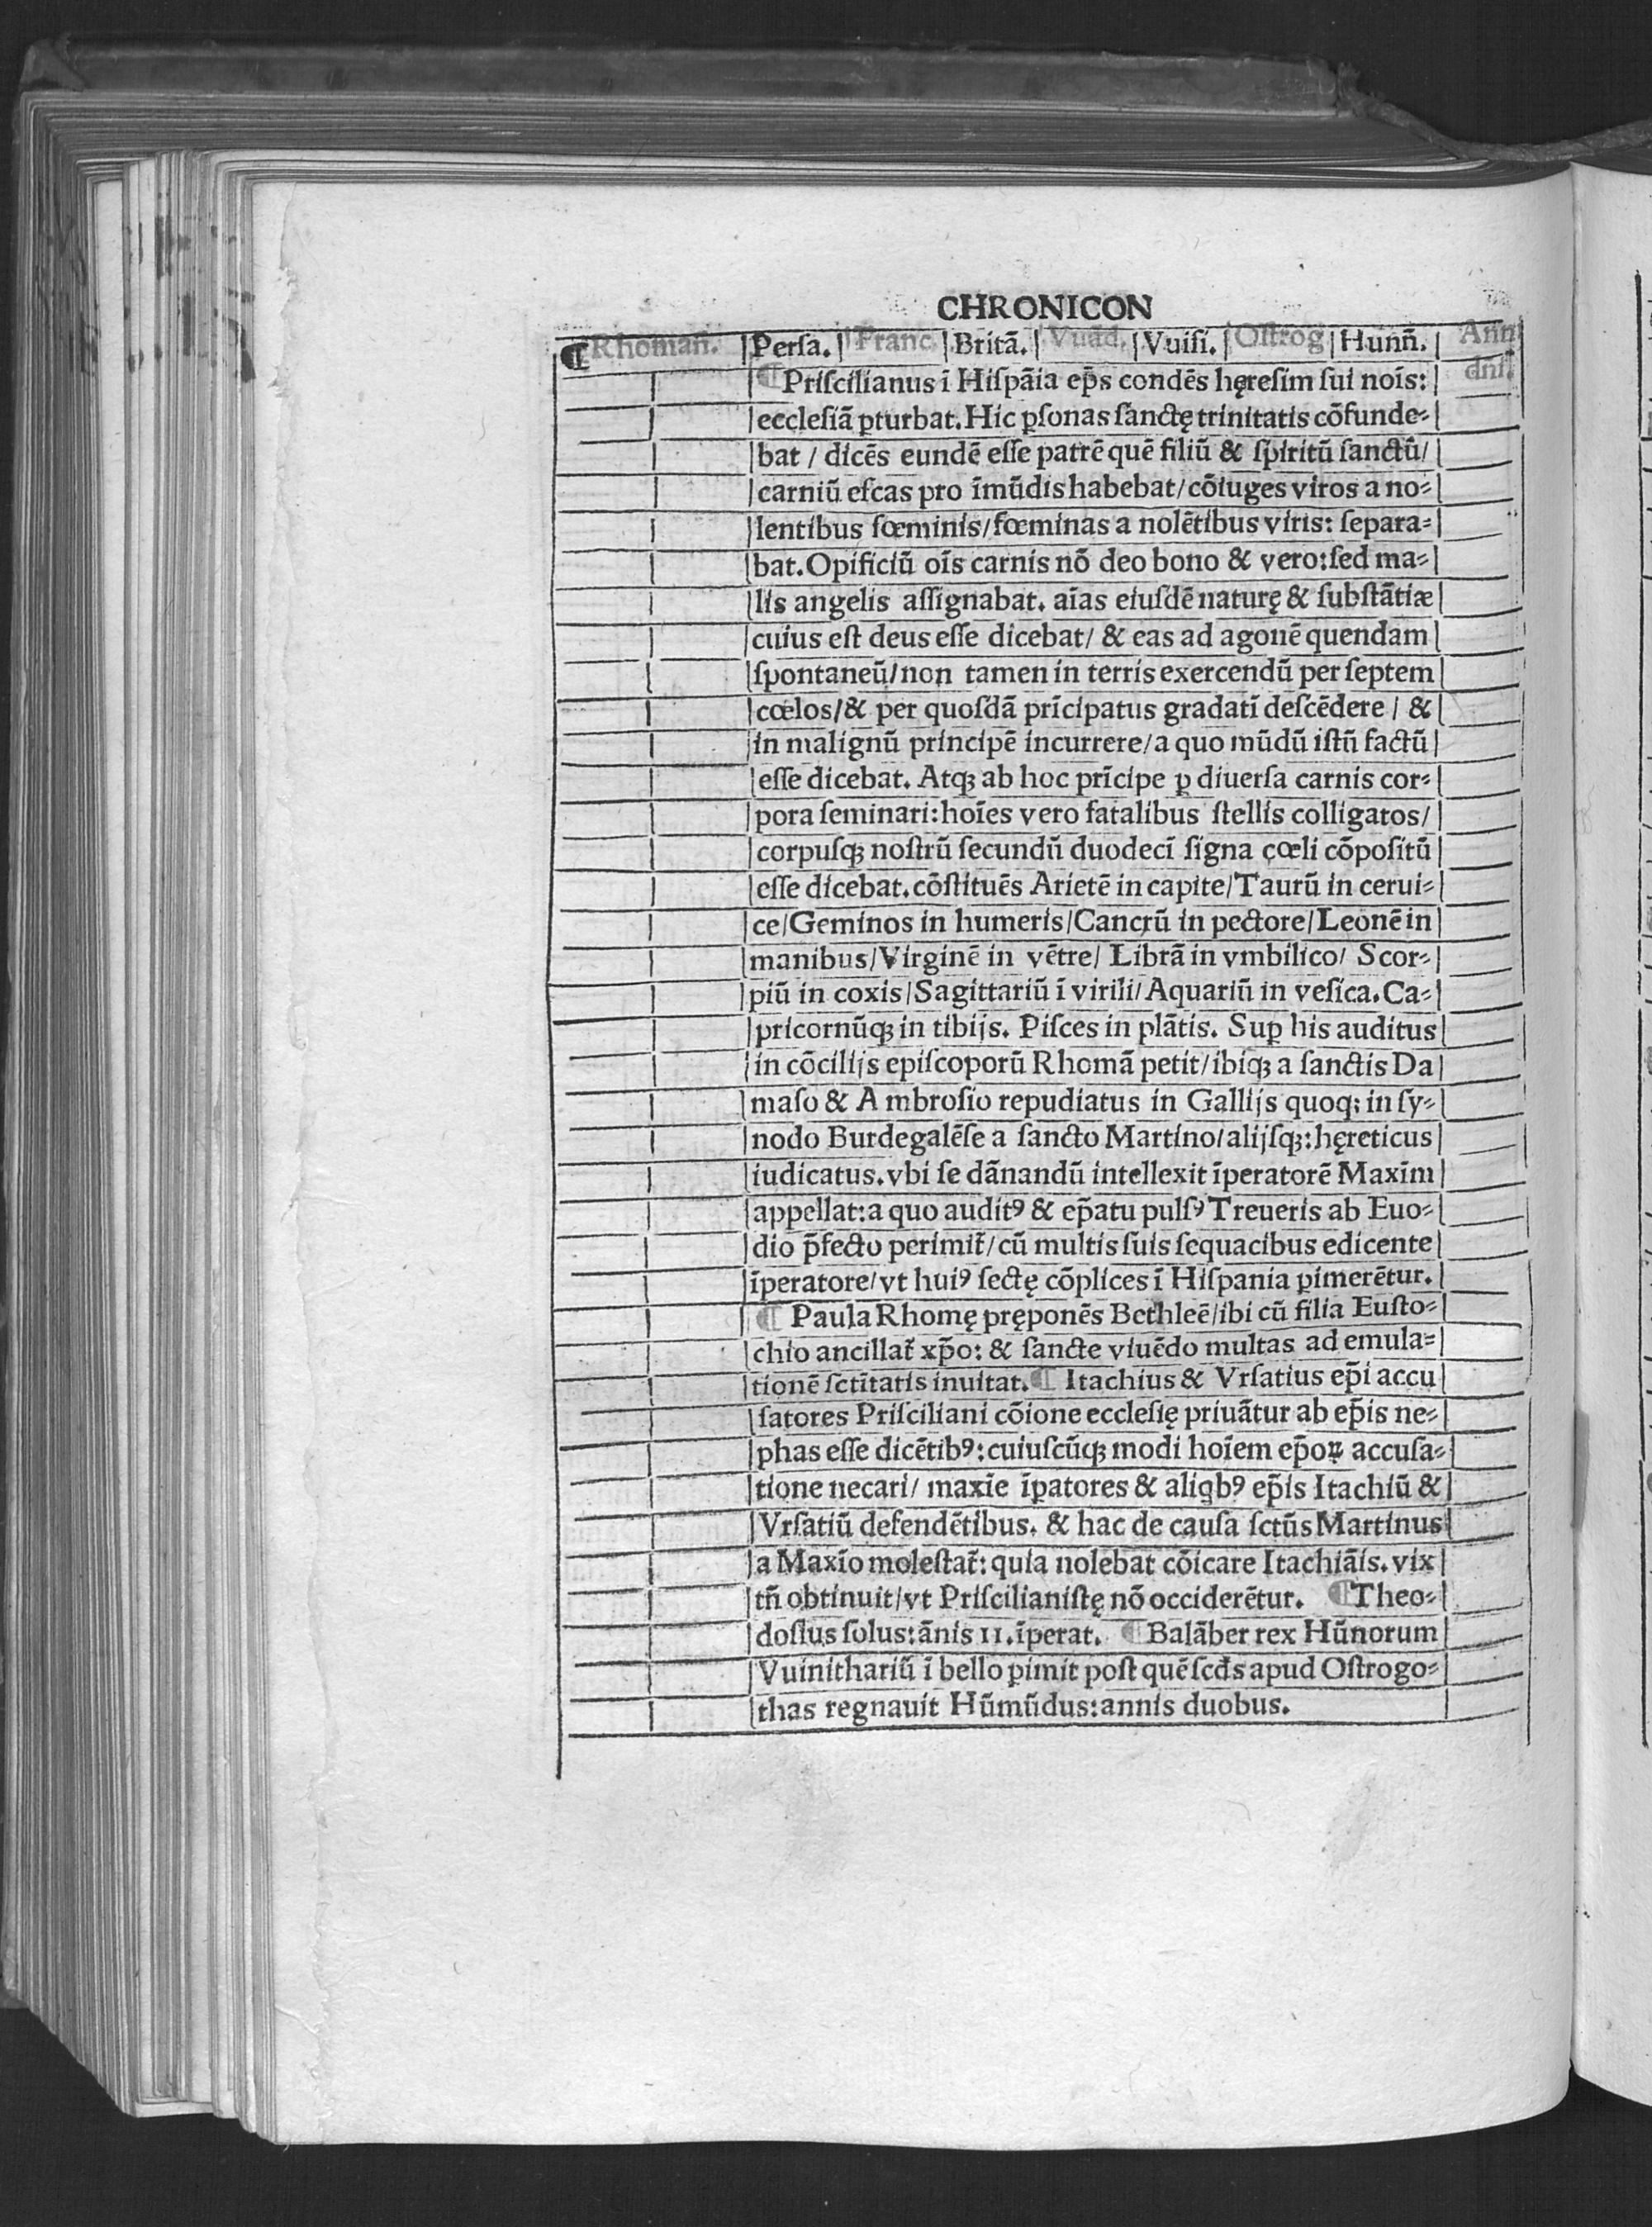 CHRONICON
¶ Rhomañ. Persa. Franc. Britã. Vuãd. Vuisi. Ostrog Hunñ. Ann
dnĩ.
¶ Priscilianus ĩ Hispãia ep̃s condẽs hęresim sui noĩs:
ecclesiã ꝑturbat. Hic ꝑsonas sanctę trinitatis cõfunde⸗
bat / dicẽs eundẽ esse patrẽ quẽ filiũ & spiritũ sanctũ/
carniũ escas pro ĩmũdis habebat/ cõiuges viros a no⸗
lentibus fœminis/fœminas a nolẽtibus viris: separa⸗
bat. Opificiũ oĩs carnis nõ deo bono & vero: sed ma⸗
lis angelis assignabat. aĩas eiusdẽ naturę & substãtiæ
cuius est deus esse dicebat/ & eas ad agonẽ quendam
spontaneũ/non tamen in terris exercendũ per septem
cœlos/& per quosdã prĩcipatus gradatĩ descẽdere / &
in malignũ principẽ incurrere/a quo mũdũ istũ factũ
esse dicebat. Atqꝫ ab hoc prĩcipe ꝑ diuersa carnis cor⸗
pora seminari: hoĩes vero fatalibus stellis colligatos/
corpusqꝫ nostrũ secundũ duodecĩ signa cœli cõpositũ
esse dicebat. cõstituẽs Arietẽ in capite/Taurũ in cerui⸗
ce/Geminos in humeris/Cancrũ in pectore/Leonẽ in
manibus/Virginẽ in vẽtre/ Librã in vmbilico/ Scor⸗
piũ in coxis/Sagittariũ ĩ virili/Aquariũ in vesica. Ca⸗
pricornũqꝫ in tibijs. Pisces in plãtis. Suꝑ his auditus
in cõcilijs episcoporũ Rhomã petit/ibiqꝫ a sanctis Da
maso & Ambrosio repudiatus in Gallijs quoqꝫ in sy⸗
nodo Burdegalẽse a sancto Martino/alijsqꝫ: hęreticus
iudicatus. vbi se dãnandũ intellexit ĩperatorẽ Maxĩm
appellat: a quo auditꝰ & ep̃atu pulsꝰ Treueris ab Euo⸗
dio p̃fecto perimit̃/cũ multis suis sequacibus edicente
ĩperatore/vt huiꝰ sectę cõplices ĩ Hispania ꝑimerẽtur.
¶ Paula Rhomę pręponẽs Bethleẽ/ibi cũ filia Eusto⸗
chio ancillat̃ xp̃o: & sancte viuẽdo multas ad emula⸗
tionẽ sctĩtatis inuitat. ¶ Itachius & Vrsatius ep̃i accu
satores Prisciliani cõione ecclesię priuãtur ab ep̃is ne⸗
phas esse dicẽtibꝰ: cuiuscũqꝫ modi hoĩem ep̃oꝝ accusa⸗
tione necari/ maxĩe ĩꝑatores & aliqbꝰ ep̃is Itachiũ &
Vrsatiũ defendẽtibus. & hac de causa sctũs Martinus
a Maxĩo molestat̃: quia nolebat cõicare Itachiãis. vix
tñ obtinuit/vt Priscilianistę nõ occiderẽtur. ¶ Theo⸗
dosius solus: ãnis 11. ĩperat. ¶ Balãber rex Hũnorum
Vuinithariũ ĩ bello ꝑimit post quẽ scd̃s apud Ostrogo⸗
thas regnauit Hũmũdus: annis duobus.